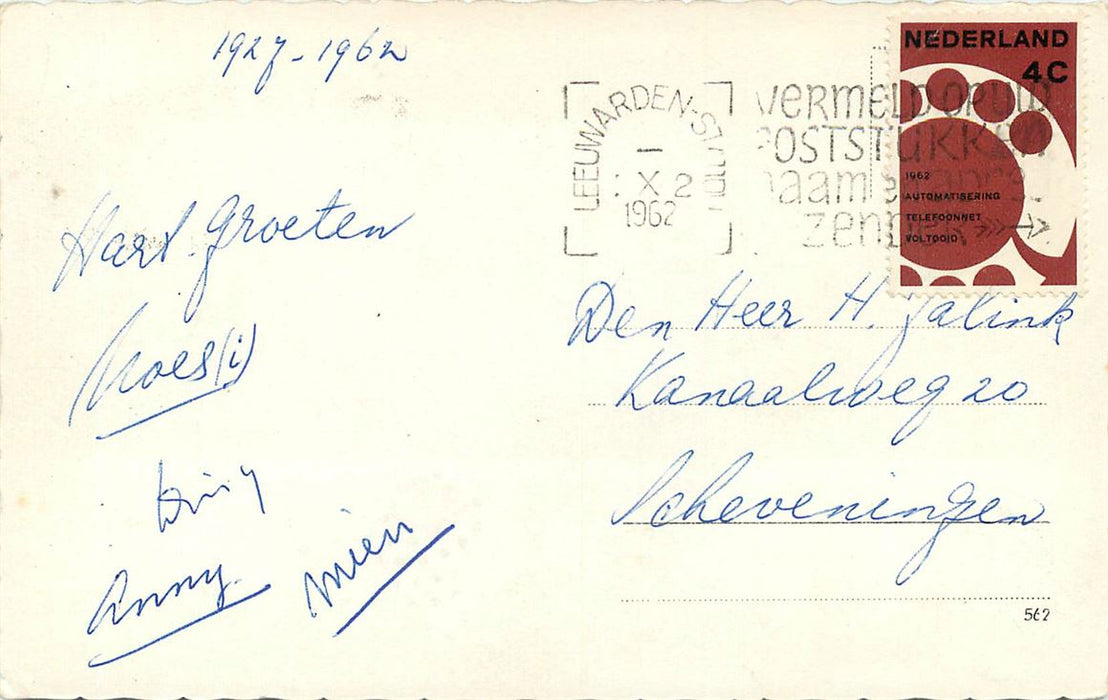 1927-1962
Hart. groeten
Anny.
Mien
NEDERLAND
4C
1962
AUTOMATISERING
TELEFOONNET
VOLTOOID
LEEUWARDEN-STATION
X 2
1962
VERMELD OP UW
POSTSTUKKEN
naam en adres
zender
Den Heer H. Jalink
Kanaalweg 20
Scheveningen
562